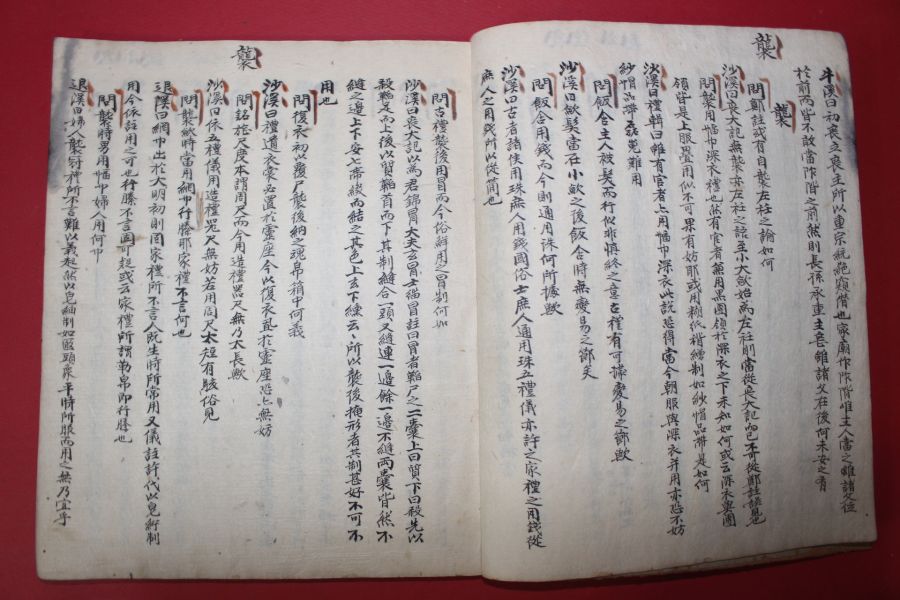 襲
斗溪曰初喪立喪主所以重宗統絶窺僭也家廟作阼階唯主人當之雖諸父位
於前而皆不敢當阼階之前然則長孫承重主喪雖諸父在後何未安之有
襲
問鄭註或有自襲左衽之論如何
沙溪曰喪大記無襲亦左衽之語至小大斂始爲左衽則當從喪大記而已不可從鄭註
問襲用幅巾深衣禮也然有官者蓋用黑團領於深衣之下未知如何或云深衣與團
領皆是上服疊用似不可果有妨耶或用糊紙楷繪制如紗帽品帶是如何
沙溪曰禮輯曰雖有官者亦用幅巾深衣此說恐得當今朝服與深衣并用亦恐不妨
紗帽品帶磊嵬難用
問飯含主人被髮而行似非愼終之意古禮有可據變易之節歟
沙溪曰斂髮當在小斂之後飯含時無變易之節矣
問飯含用錢而今則通用珠何所據歟
沙溪曰古者諸侯用珠庶人用錢國俗士庶人通用珠五禮儀亦許之家禮之用錢從
庶人之用錢所以從簡也
襲
問古禮襲後用冒而今俗鮮用之冒制何如
沙溪曰喪大記以爲君錦冒大夫玄冒士緇冒註曰冒者韜尸之二囊上曰質下曰殺先以
殺韜足而上後以質韜首而下其制縫合一頭又縫連一邊餘一邊不縫兩囊皆然不
縫之邊上下安七帶綴而結之其色上玄下纁云所以襲後掩形者其制甚好不可不
用也
問復衣初以覆尸襲後納之魂帛箱中何義
沙溪曰禮遺衣裳必置於靈座今以復衣置於靈座恐無妨
問銘旌尺度本謂周尺而今用造禮器尺無乃太長歟
沙溪曰依五禮儀用造禮器尺無妨若用周尺太短有駭俗見
問襲斂時當用網巾行縢耶家禮不言何也
退溪曰網巾出於大明初則固家禮所不言人旣生時所常用又儀註許代以皂紬制
用今依註用之可也行縢不言固可起或云家禮所謂勒帛即行縢也
問襲時男用幅巾婦人用何巾
退溪曰婦人襲斂禮所不言難以義起然以皂紬制如